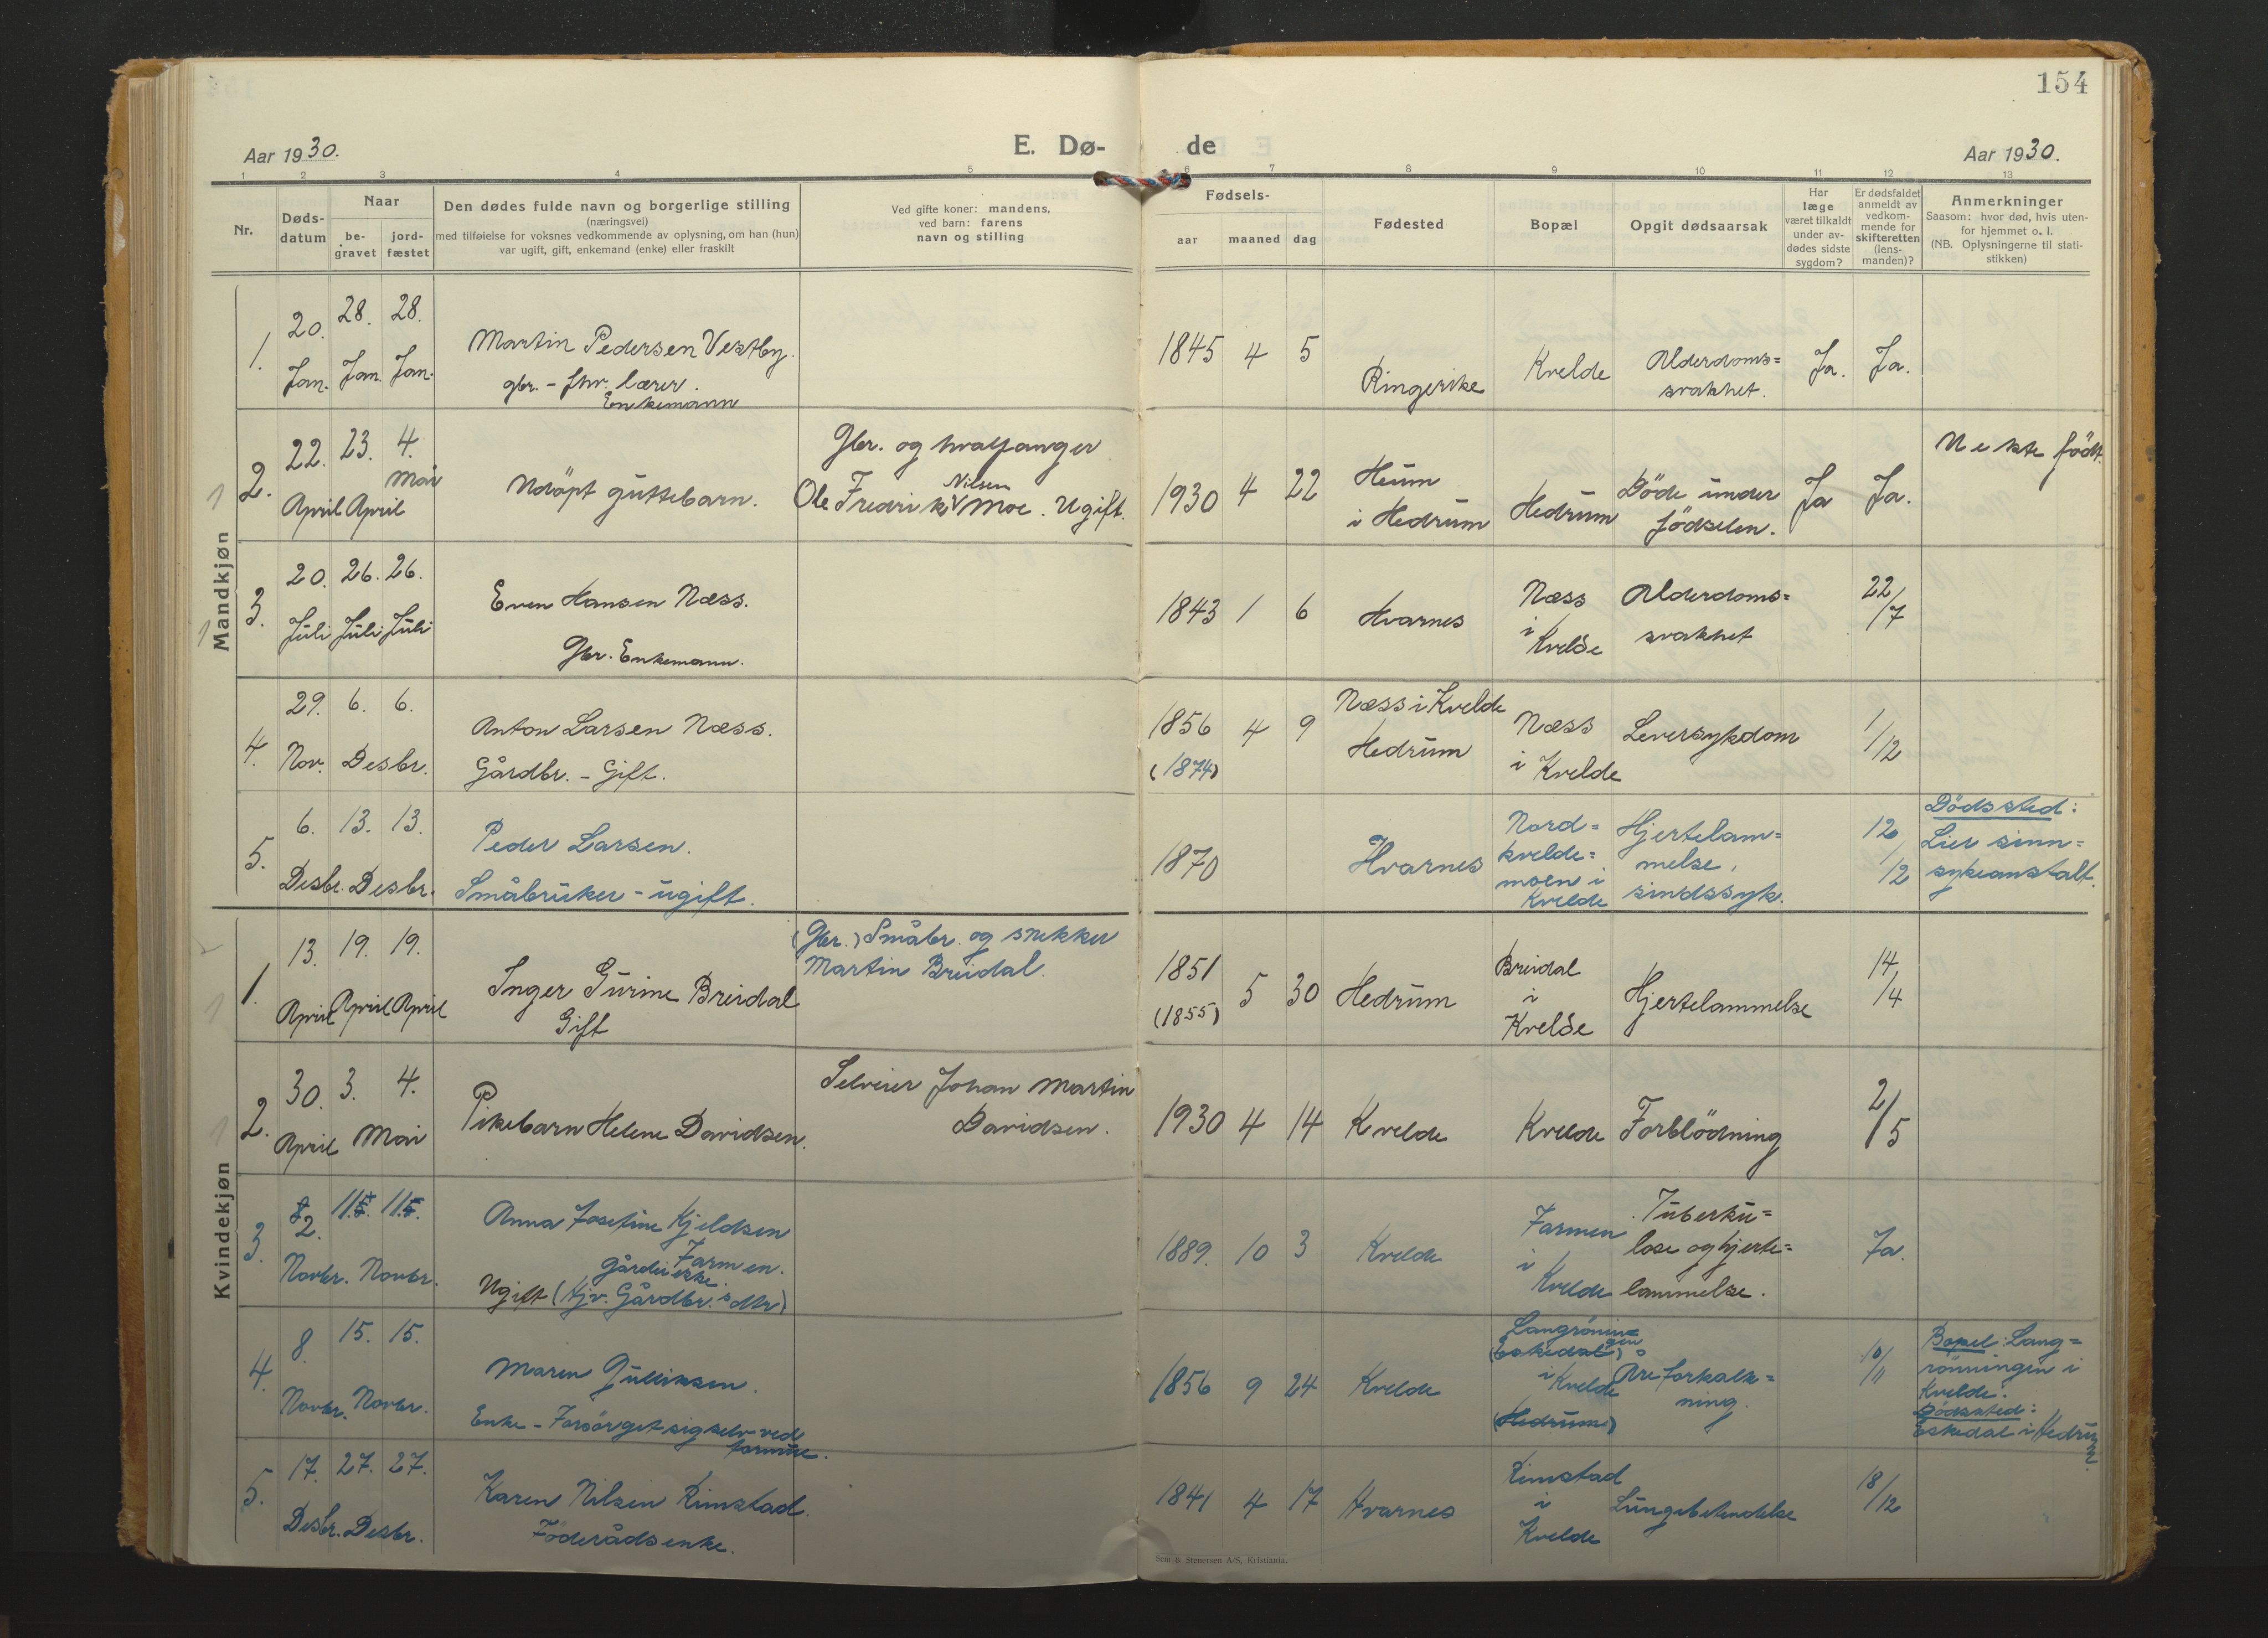 154
Aar 1930.
E. Dø-
de
Aar 1930.
1 2 3 4 5 6 7 8 9 10 11 12 13
Nr.
Døds-
datum
Naar
be-
gravet
jord-
fæstet
Den dødes fulde navn og borgerlige stilling
(næringsvei)
med tilføielse for voksnes vedkommende av oplysning, om han (hun)
var ugift, gift, enkemand (enke) eller fraskilt
Ved gifte koner: mandens,
ved barn: farens
navn og stilling
Fødsels-
aar maaned dag
Fødested
Bopæl
Opgit dødsaarsak
Har
læge
været tilkaldt
under av-
dødes sidste
sygdom?
Er dødsfaldet
anmeldt av
vedkom-
mende for
skifteretten
(lens-
manden)?
Anmerkninger
Saasom: hvor død, hvis uten-
for hjemmet o. l.
(NB. Oplysningerne til stati-
stikken)
Mandkjøn
1.
20. 28. 28.
Jan. Jan. Jan.
Martin Pedersen Vestby.
gbr. - fhv. lærer.
Enkemann
1845 4 5
Ringerike
Kvelde
Alderdoms=
svakhet.
Ja. Ja.
1
2.
22. 23. 4.
April April Mai
Udöpt guttebarn.
Gbr. og hvalfanger
Nilsen
Ole Fredrik Moe. Ugift.
1930 4 22
Heum
i Hedrum
Hedrum
Döde under
födselen.
Ja Ja.
Uekte födt.
1
3.
20. 26. 26.
Juli Juli Juli
Even Hansen Næss.
Gbr. Enkemann.
1843 1 6
Hvarnes
Næss
i
Kvelde
Alderdoms=
svakhet
22/7
4.
29. 6. 6.
Nov. Desbr.
Anton Larsen Næss.
Gårdbr. - Gift.
1856 4 9
(1874)
Næss i Kvelde
Hedrum
Næss
i Kvelde
Leversykdom
1/12
5.
6. 13. 13.
Desbr. Desbr.
Peder Larsen.
Småbruker - ugift.
1870
Hvarnes
Nord=
kvelde=
moen i
Kvelde
Hjertelam=
melse,
sindssyk.
12/12
Dödssted:
Lier sinn=
sykeanstalt.
Kvindekjøn
1
1.
13. 19. 19.
April April April
Inger Gurine Breidal
Gift
(Gbr.) Småbr. og snekker
Martin Breidal.
1851 5 30
(1855)
Hedrum
Breidal
i
Kvelde
Hjertelammelse
14/4
1
2.
30. 3. 4.
April Mai
Pikebarn Helene Davidsen.
Selveier Johan Martin
Davidsen.
1930 4 14
Kvelde
Kvelde
Forblödning
2/5
3.
2. 11. 11.
Novbr. Novbr.
Anna Josefine Kjeldsen
Farmen.
Gårdeierske.
Ugift (Hjv. Gårdbr.s dtr)
1889. 10 3
Kvelde
Farmen
i
Kvelde
Tuberku=
lose og hjerte=
lammelse.
Ja.
4.
8. 15. 15.
Novbr. Novbr.
Maren Gulliksen.
Enke - Forsörget sig selv ved
formue.
1856 9 24
Kvelde
Langrönnin=
gen
(Eskedal)
i Kvelde
(Hedrum)
Åreforkalk=
ning.
10/11
Bopel: Lang=
rönningen i
Kvelde.
Dödssted:
Eskedal i Hedrum.
5.
17. 27. 27.
Desbr. Desbr.
Karen Nilsen Rimstad.
Föderådsenke.
1841 4 17
Hvarnes
Rimstad
i
Kvelde
Lungebetendelse
18/12
Sem & Stenersen A/S, Kristiania.